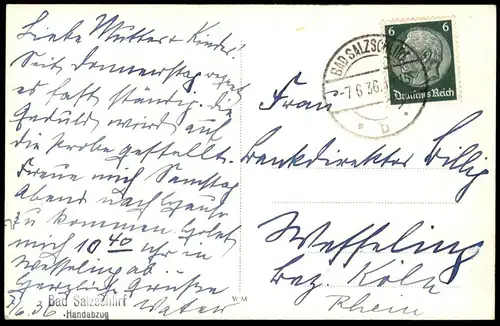 Liebe Mutter u Kinder!
Seit Donnerstag regnet
es fast ständig. Die
Geduld wird auf
die Probe gestellt.
Freue mich Samstag
Abend nach Haus
zu kommen. Holet
mich 10 40 Uhr in
Wesseling ab.
Herzliche Grüße
7/6.36 Vater
Bad Salzschlirf
-Handabzug
W M
BAD SALZSCHLIRF
-7.6.36.
b
6 6
Deutsches Reich
Frau
Bankdirektor Billig
Wesseling
Bez. Köln
Rhein